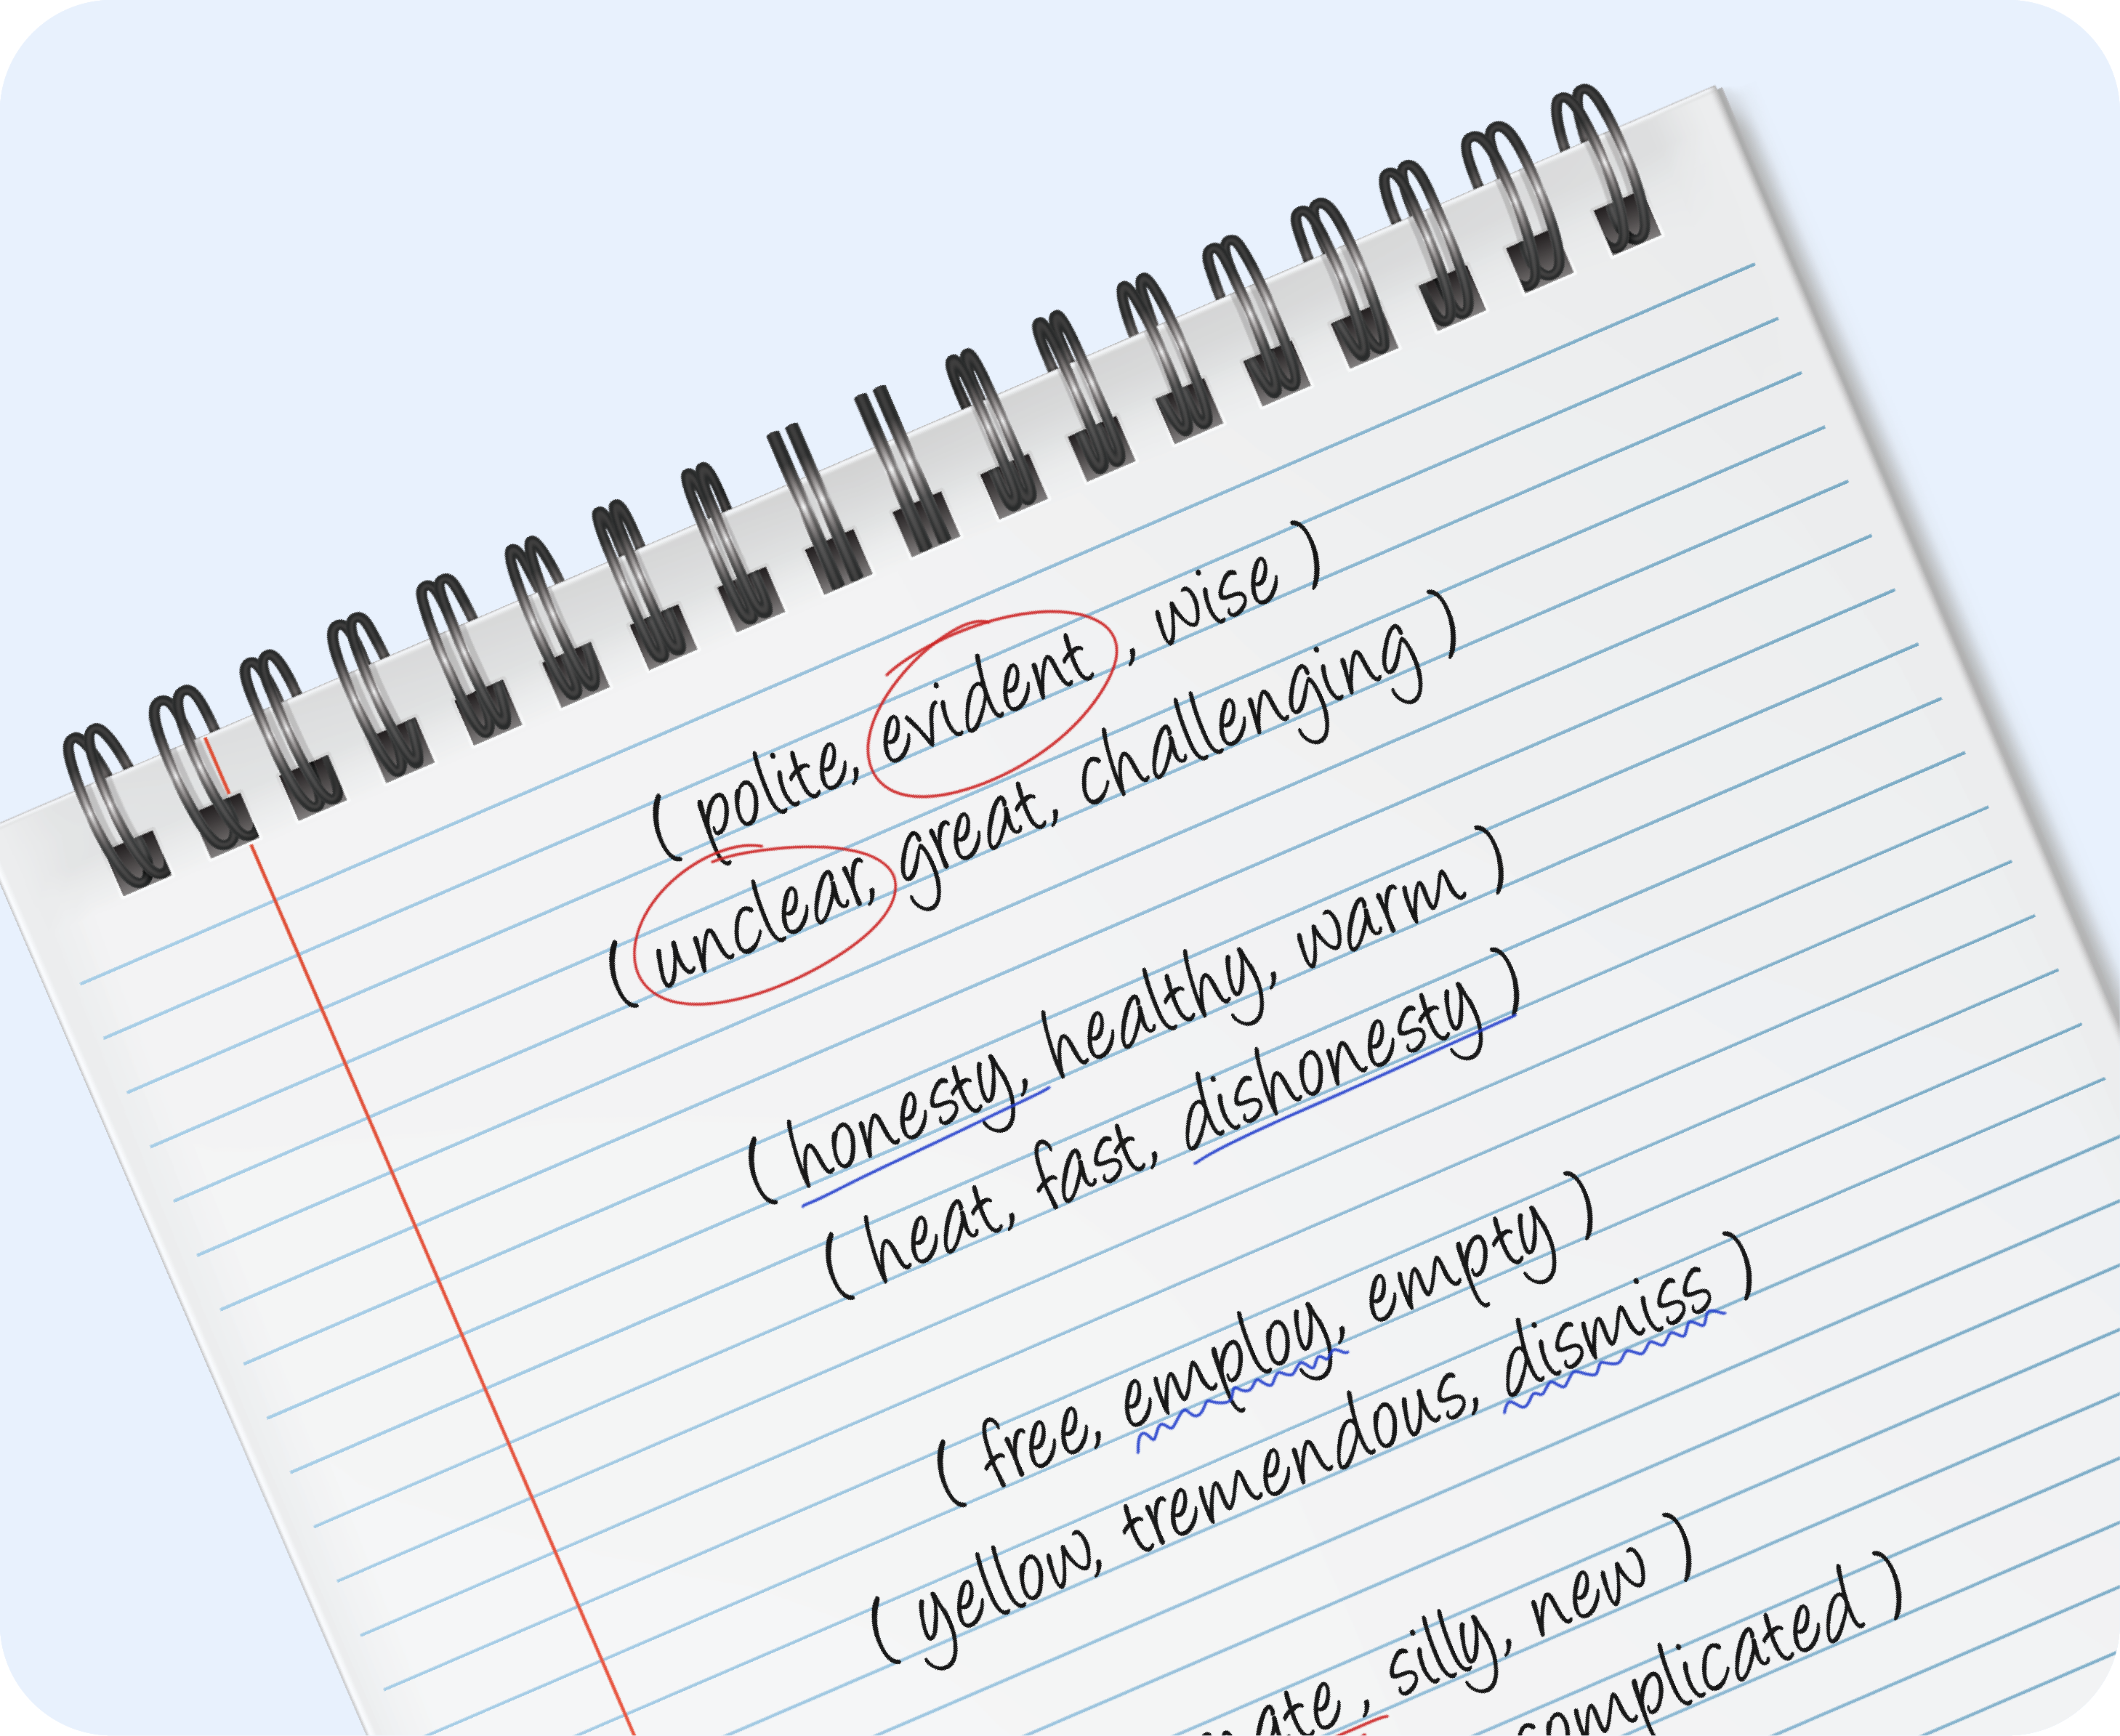 ( polite, evident , wise )
( unclear, great, challenging )
( honesty, healthy, warm )
( heat, fast, dishonesty )
( free, employ, empty )
( yellow, tremendous, dismiss )
, silly, new )
complicated )